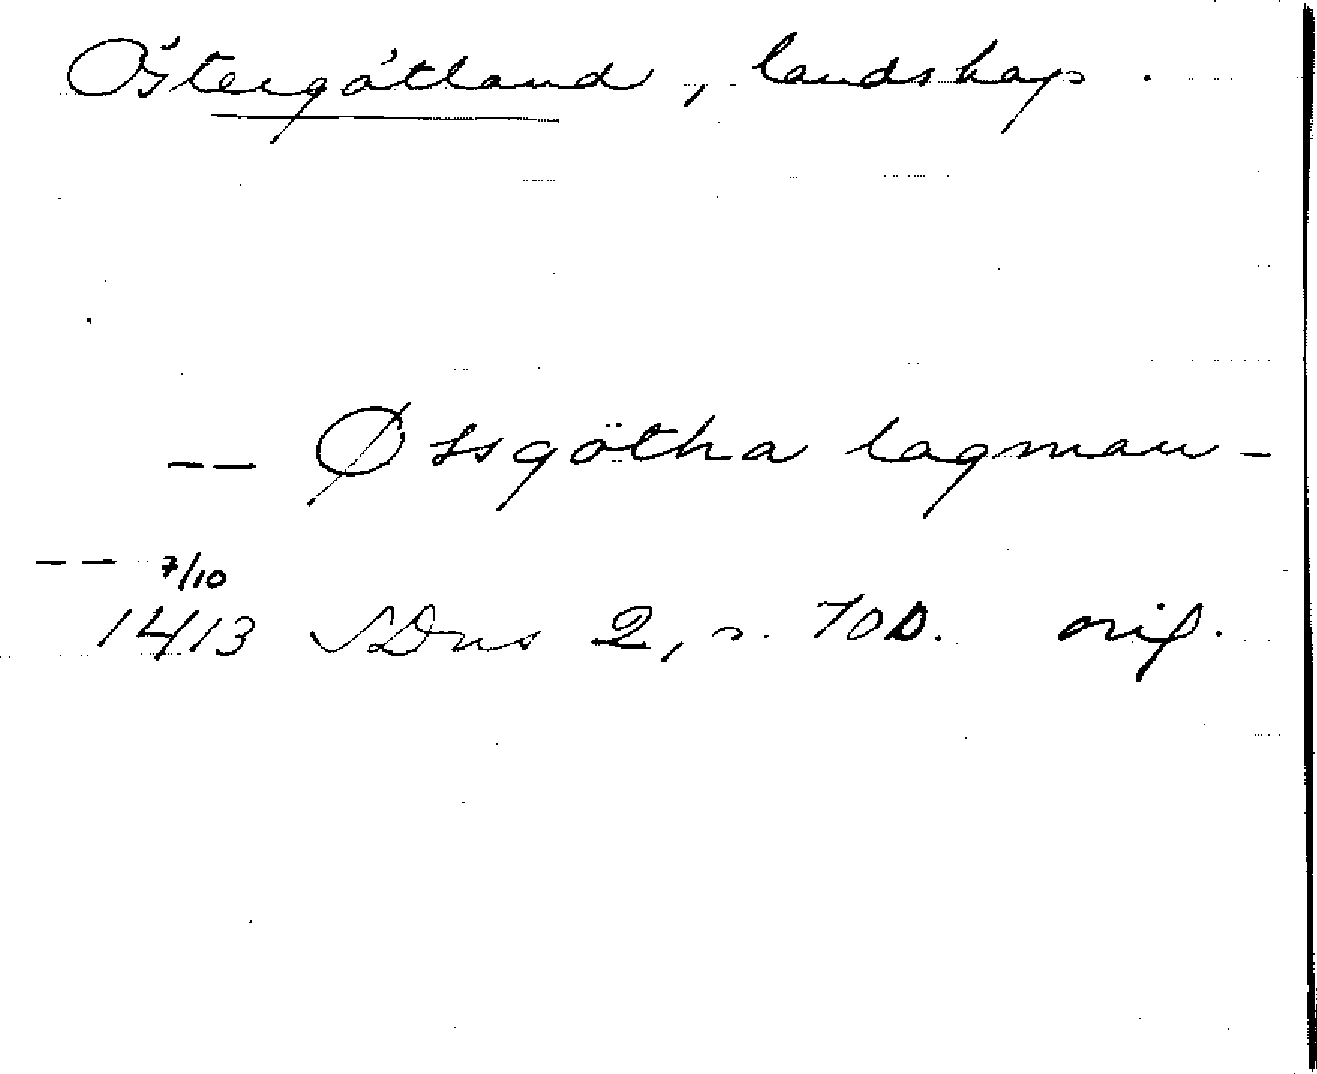 Östergötland, landskap.
-- Øssgötha lagman-
-- 7/10
1413 SDns 2, s. 700. orig.